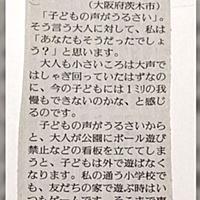 （大阪府茨木市）
「子どもの声がうるさい」。
そう言う大人に対して、私は
「あなたもそうだったでしょ
う？」と思います。
大人も小さいころは大声で
はしゃぎ回っていたはずなの
に、今の子どもには1ミリの我
慢もできないのかな、と感じ
るのです。
子どもの声がうるさいから
と、大人が公園にボール遊び
禁止などの看板を立ててしま
うと、子どもは外で遊ばなく
なります。私の通う小学校で
も、友だちの家で遊ぶ時はい